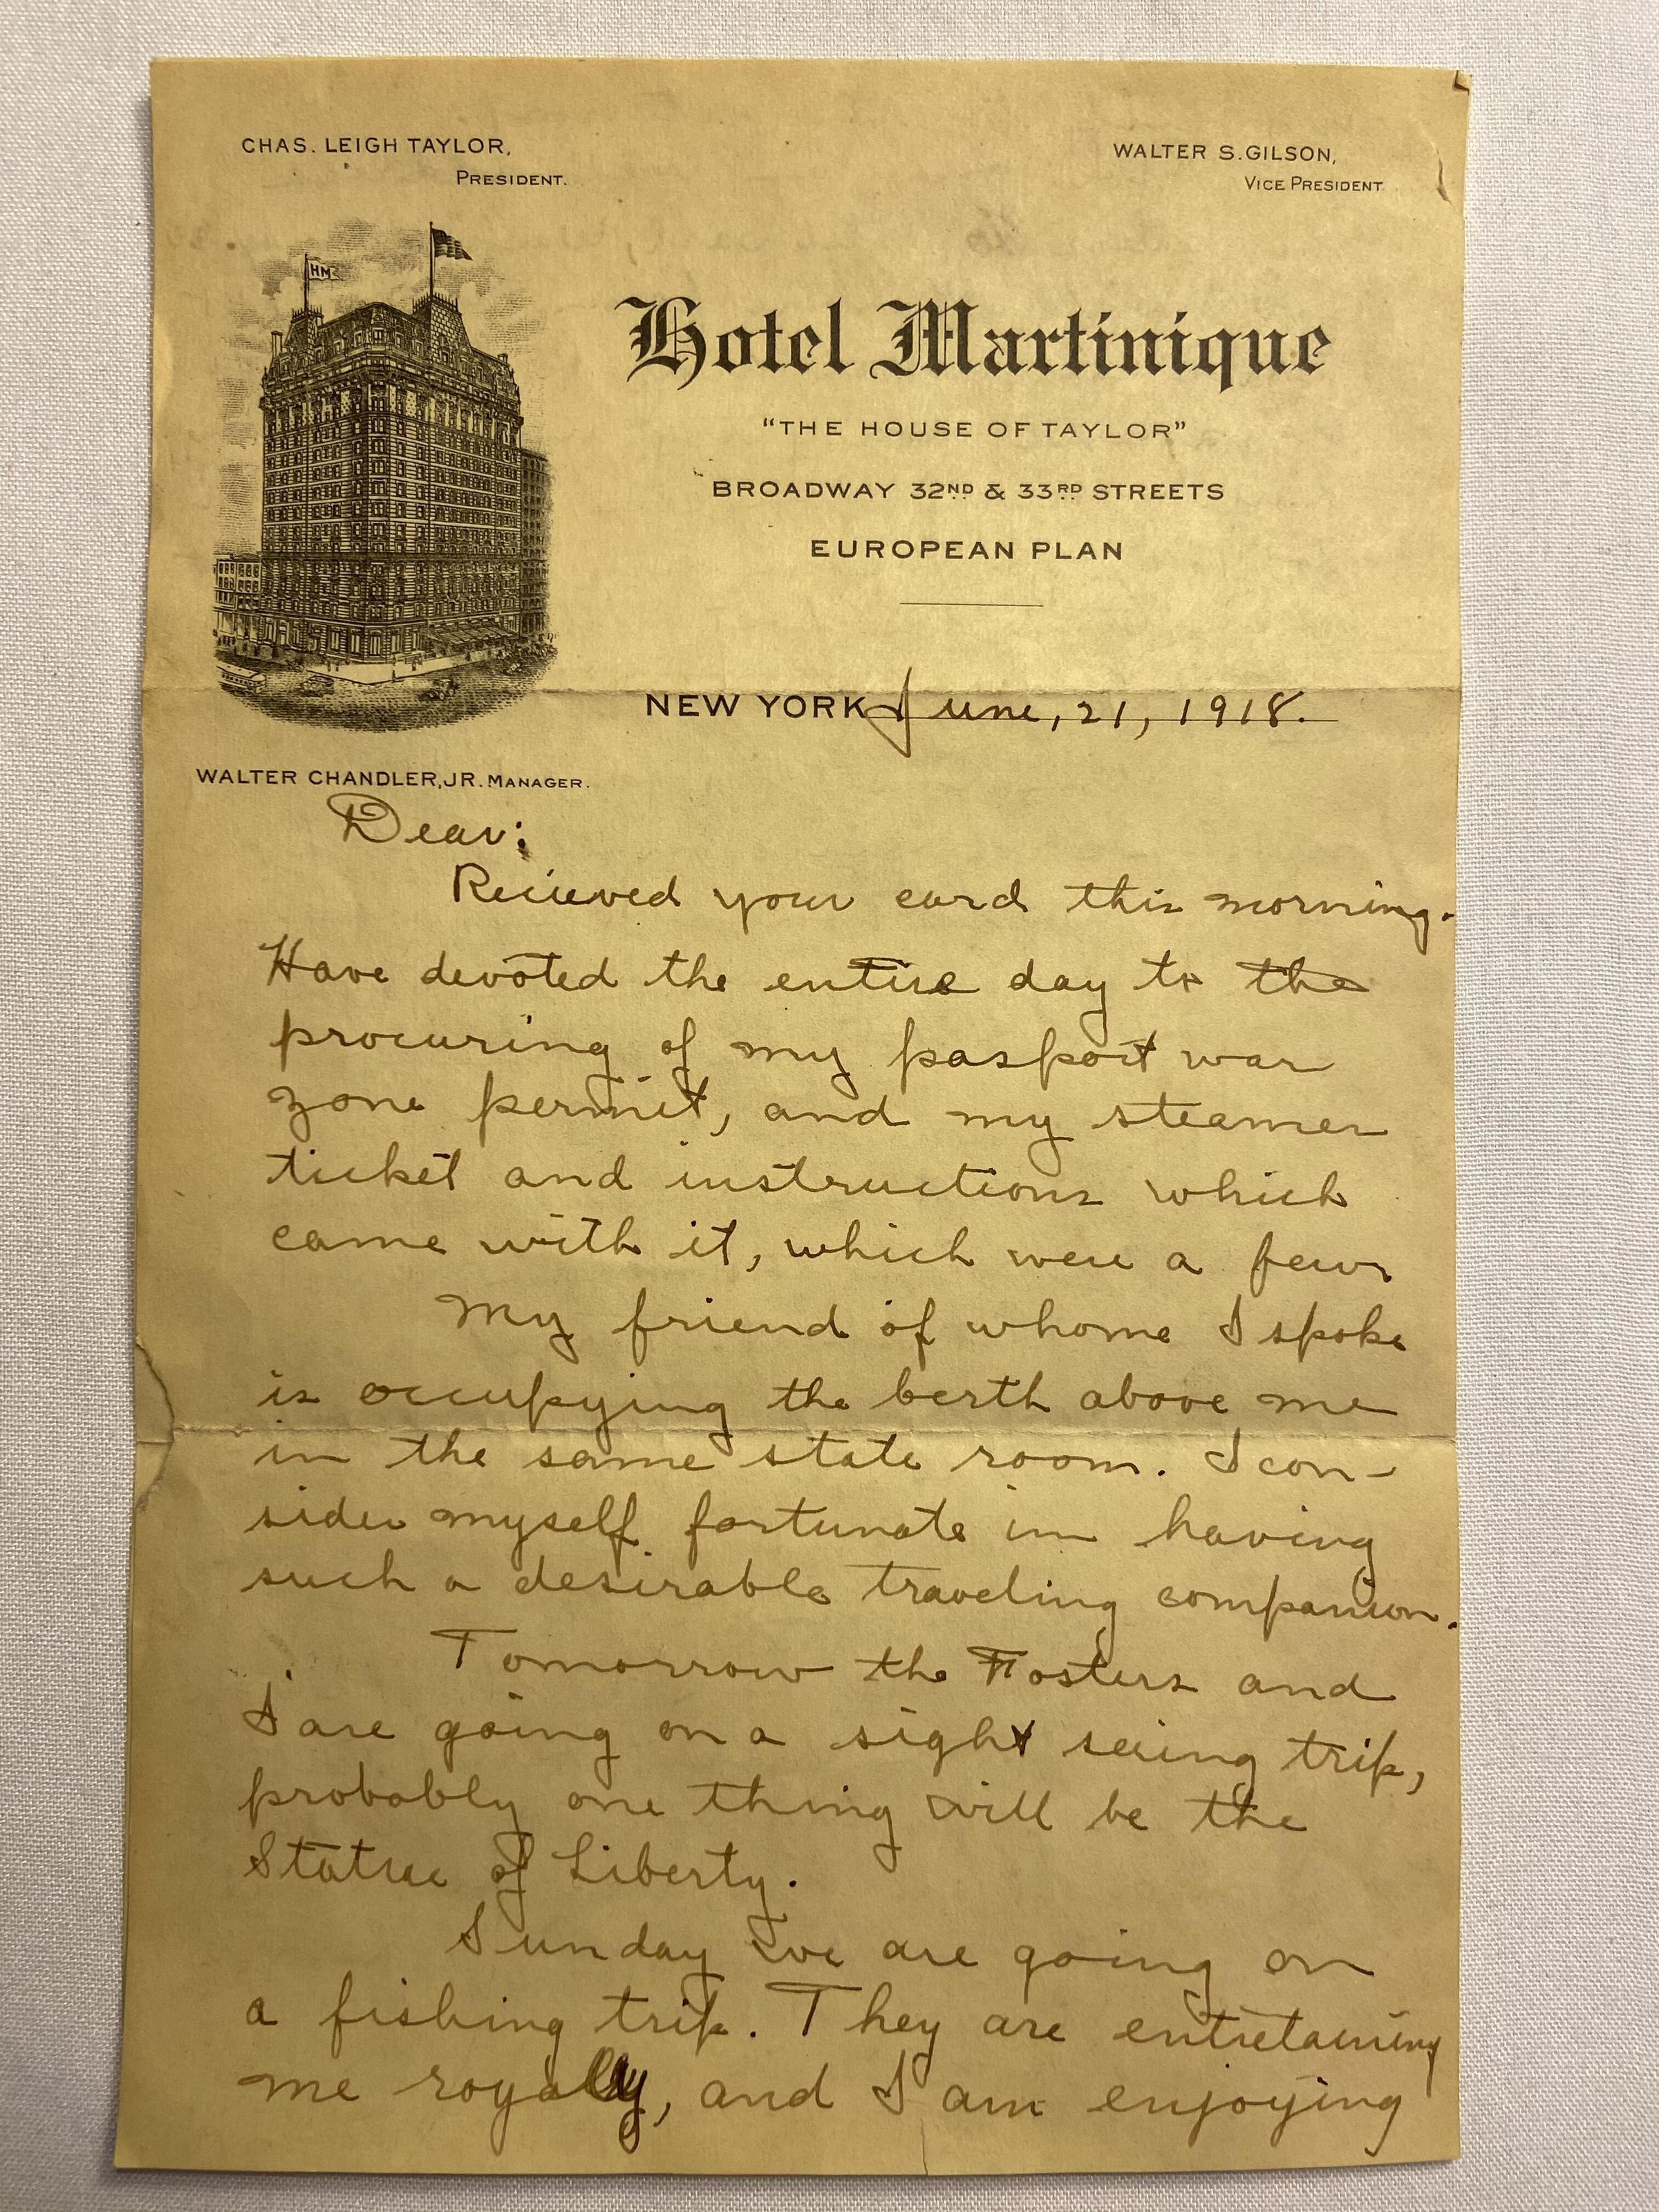 CHAS. LEIGH TAYLOR,
PRESIDENT.
WALTER S. GILSON,
VICE PRESIDENT
HM
Hotel Martinique
"THE HOUSE OF TAYLOR"
BROADWAY 32ND & 33RD STREETS
EUROPEAN PLAN
NEW YORK June, 21, 1918.
WALTER CHANDLER, JR. MANAGER.
Dear:
Recieved your card this morning.
Have devoted the entire day to the
procuring of my pasport war
zone permit, and my steamer
ticket and instructions which
came with it, which were a few
My friend of whome I spoke
is occupying the berth above me
in the same state room. I con-
sider myself fortunate in having
such a desirable traveling companion.
Tomorrow the Fosters and
I are going on a sight seeing trip,
probobly one thing will be the
Statue of Liberty.
Sunday we are going on
a fishing trip. They are entretaining
me royally, and I am enjoying